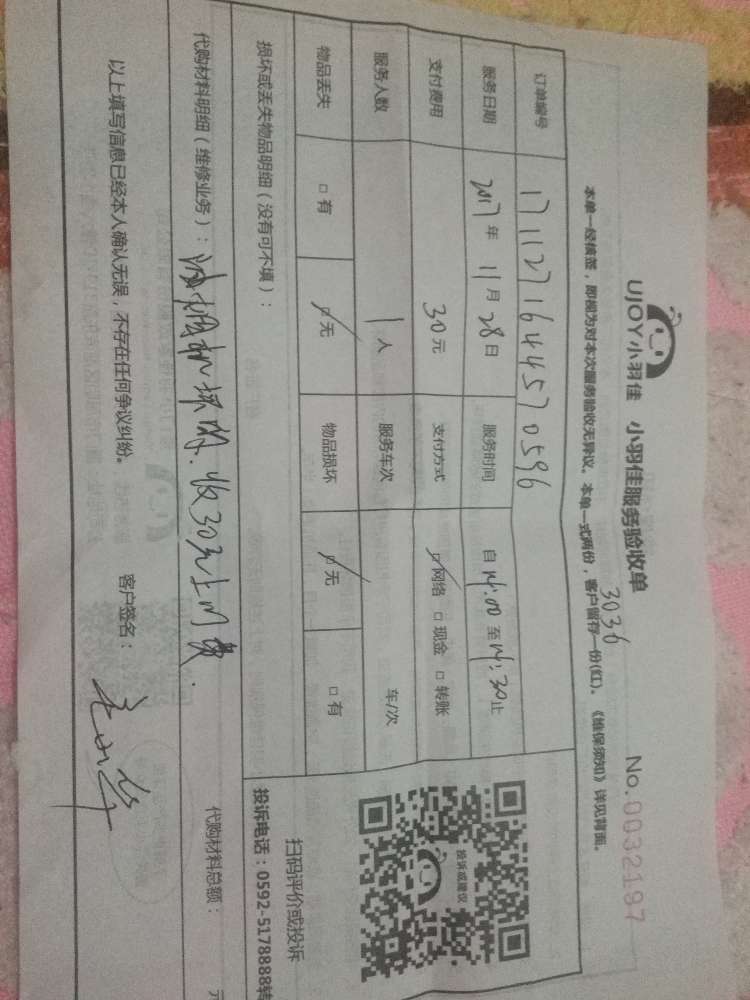 UJOY小羽佳 小羽佳服务验收单 No.0032197
3036
本单一经核签，即视为对本次服务验收无异议。本单一式两份，客户留存一份(红)。《维保须知》详见背面。
订单编号 171127164457 0596
服务日期 2017年 11月 28日 服务时间 自 14:00 至 14:30止
支付费用 30元 支付方式 □网络 □现金 □转账
服务人数 1人 服务车次 车/次
物品丢失 □有 □无 物品损坏 □无 □有
投诉或建议
扫码评价或投诉
投诉电话：0592-5178888转
损坏或丢失物品明细（没有可不填）：
代购材料明细（维修业务）：油烟机 收30元上门费.
代购材料总额： 元
以上填写信息已经本人确认无误，不存在任何争议纠纷。 客户签名：